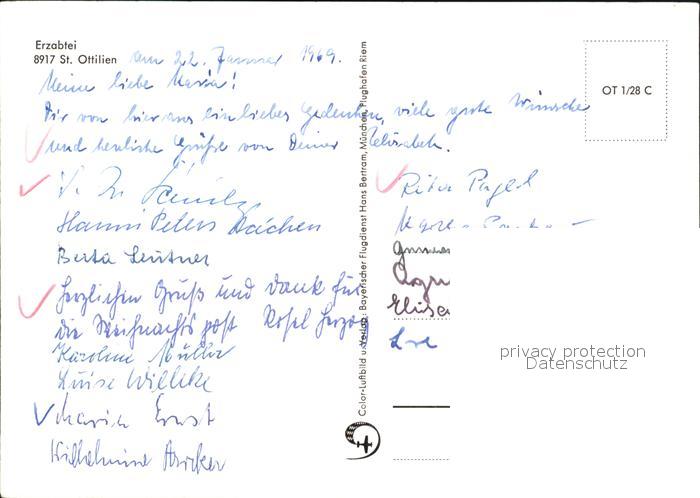 Erzabtei
8917 St. Ottilien
am 22. Januar 1969.
Meine liebe Maria!
Dir von hier aus ein liebes Gedenken, viele gute Wünsche
und herzliche Grüße von Deiner Elisabeth.
Hanni Peters Dächen
Berta Leutner
Herzlichen Gruß und Dank für
die Weihnachtspost Rosel
Karoline Müller
Luise Willeke
Maria Ernst
Wilhelmine
Color-Luftbild u. Verlag: Bayerischer Flugdienst Hans Bertram, München, Flughafen Riem
OT 1/28 C
Rita
privacy protection
Datenschutz